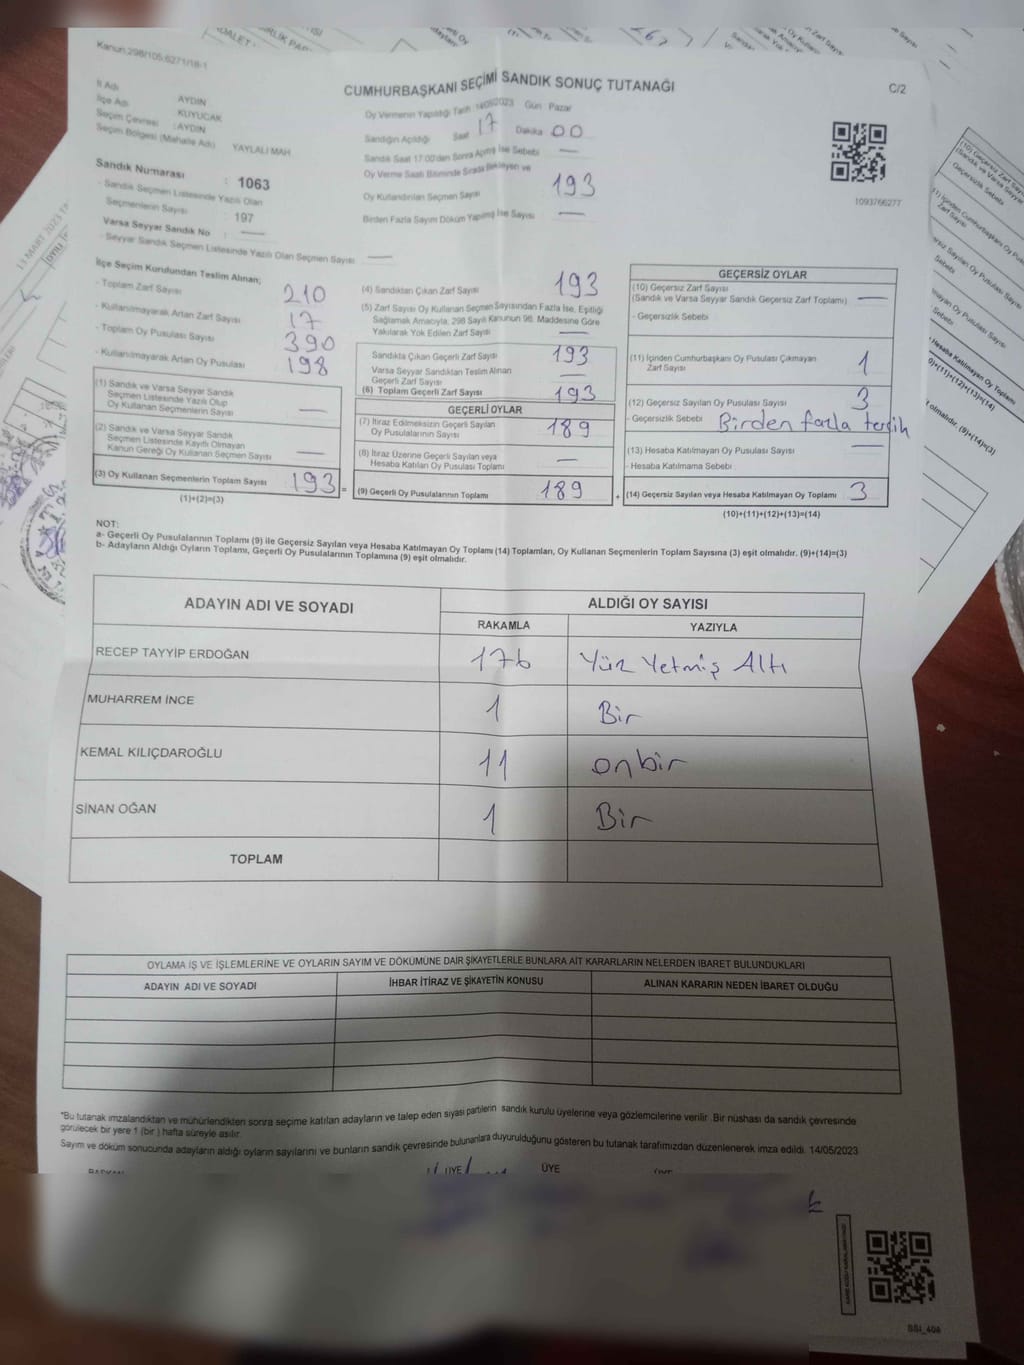 Kanun:298/105;6271/18-1
CUMHURBAŞKANI SEÇİMİ SANDIK SONUÇ TUTANAĞI
C/2
İl Adı AYDIN
İlçe Adı KUYUCAK
Seçim Çevresi : AYDIN
Seçim Bölgesi (Mahalle Adı) YAYLALI MAH
Sandık Numarası : 1063
- Sandık Seçmen Listesinde Yazılı Olan
Seçmenlerin Sayısı : 197
Varsa Seyyar Sandık No : —
- Seyyar Sandık Seçmen Listesinde Yazılı Olan Seçmen Sayısı —
Oy Vermenin Yapıldığı Tarih :14/05/2023 Gün Pazar
Sandığın Açıldığı Saat 17 Dakika 00
Sandık Saat 17:00'den Sonra Açılmış İse Sebebi —
Oy Verme Saati Bitiminde Sırada Bekleyen ve
Oy Kullandırılan Seçmen Sayısı 193
Birden Fazla Sayım Döküm Yapılmış İse Sayısı —
1093766277
İlçe Seçim Kurulundan Teslim Alınan;
- Toplam Zarf Sayısı 210
- Kullanılmayarak Artan Zarf Sayısı 17
- Toplam Oy Pusulası Sayısı 390
- Kullanılmayarak Artan Oy Pusulası 198
(1) Sandık ve Varsa Seyyar Sandık
Seçmen Listesinde Yazılı Olup
Oy Kullanan Seçmenlerin Sayısı —
(2) Sandık ve Varsa Seyyar Sandık
Seçmen Listesinde Kayıtlı Olmayan
Kanun Gereği Oy Kullanan Seçmen Sayısı —
(3) Oy Kullanan Seçmenlerin Toplam Sayısı 193 =
(1)+(2)=(3)
(4) Sandıktan Çıkan Zarf Sayısı 193
(5) Zarf Sayısı Oy Kullanan Seçmen Sayısından Fazla İse, Eşitliği
Sağlamak Amacıyla, 298 Sayılı Kanunun 98. Maddesine Göre
Yakılarak Yok Edilen Zarf Sayısı —
Sandıkta Çıkan Geçerli Zarf Sayısı 193
Varsa Seyyar Sandıktan Teslim Alınan
Geçerli Zarf Sayısı —
(6) Toplam Geçerli Zarf Sayısı 193
GEÇERLİ OYLAR
(7) İtiraz Edilmeksizin Geçerli Sayılan
Oy Pusulalarının Sayısı 189
(8) İtiraz Üzerine Geçerli Sayılan veya
Hesaba Katılan Oy Pusulası Toplamı —
(9) Geçerli Oy Pusulalarının Toplamı 189 +
GEÇERSİZ OYLAR
(10) Geçersiz Zarf Sayısı
(Sandık ve Varsa Seyyar Sandık Geçersiz Zarf Toplamı) —
- Geçersizlik Sebebi
(11) İçinden Cumhurbaşkanı Oy Pusulası Çıkmayan
Zarf Sayısı 1
(12) Geçersiz Sayılan Oy Pusulası Sayısı 3
- Geçersizlik Sebebi Birden fazla tercih
(13) Hesaba Katılmayan Oy Pusulası Sayısı —
- Hesaba Katılmama Sebebi
(14) Geçersiz Sayılan veya Hesaba Katılmayan Oy Toplamı 3
(10)+(11)+(12)+(13)=(14)
NOT:
a- Geçerli Oy Pusulalarının Toplamı (9) ile Geçersiz Sayılan veya Hesaba Katılmayan Oy Toplamı (14) Toplamları, Oy Kullanan Seçmenlerin Toplam Sayısına (3) eşit olmalıdır. (9)+(14)=(3)
b- Adayların Aldığı Oyların Toplamı, Geçerli Oy Pusulalarının Toplamına (9) eşit olmalıdır.
ADAYIN ADI VE SOYADI
ALDIĞI OY SAYISI
RAKAMLA YAZIYLA
RECEP TAYYİP ERDOĞAN 176 Yüz Yetmiş Altı
MUHARREM İNCE 1 Bir
KEMAL KILIÇDAROĞLU 11 onbir
SİNAN OĞAN 1 Bir
TOPLAM
OYLAMA İŞ VE İŞLEMLERİNE VE OYLARIN SAYIM VE DÖKÜMÜNE DAİR ŞİKAYETLERLE BUNLARA AİT KARARLARIN NELERDEN İBARET BULUNDUKLARI
ADAYIN ADI VE SOYADI İHBAR İTİRAZ VE ŞİKAYETİN KONUSU ALINAN KARARIN NEDEN İBARET OLDUĞU
*Bu tutanak imzalandıktan ve mühürlendikten sonra seçime katılan adayların ve talep eden siyasi partilerin sandık kurulu üyelerine veya gözlemcilerine verilir. Bir nüshası da sandık çevresinde
görülecek bir yere 1 (bir ) hafta süreyle asılır.
Sayım ve döküm sonucunda adayların aldığı oyların sayılarını ve bunların sandık çevresinde bulunanlara duyurulduğunu gösteren bu tutanak tarafımızdan düzenlenerek imza edildi. 14/05/2023
BAŞKAN ÜYE ÜYE
SSİ_406